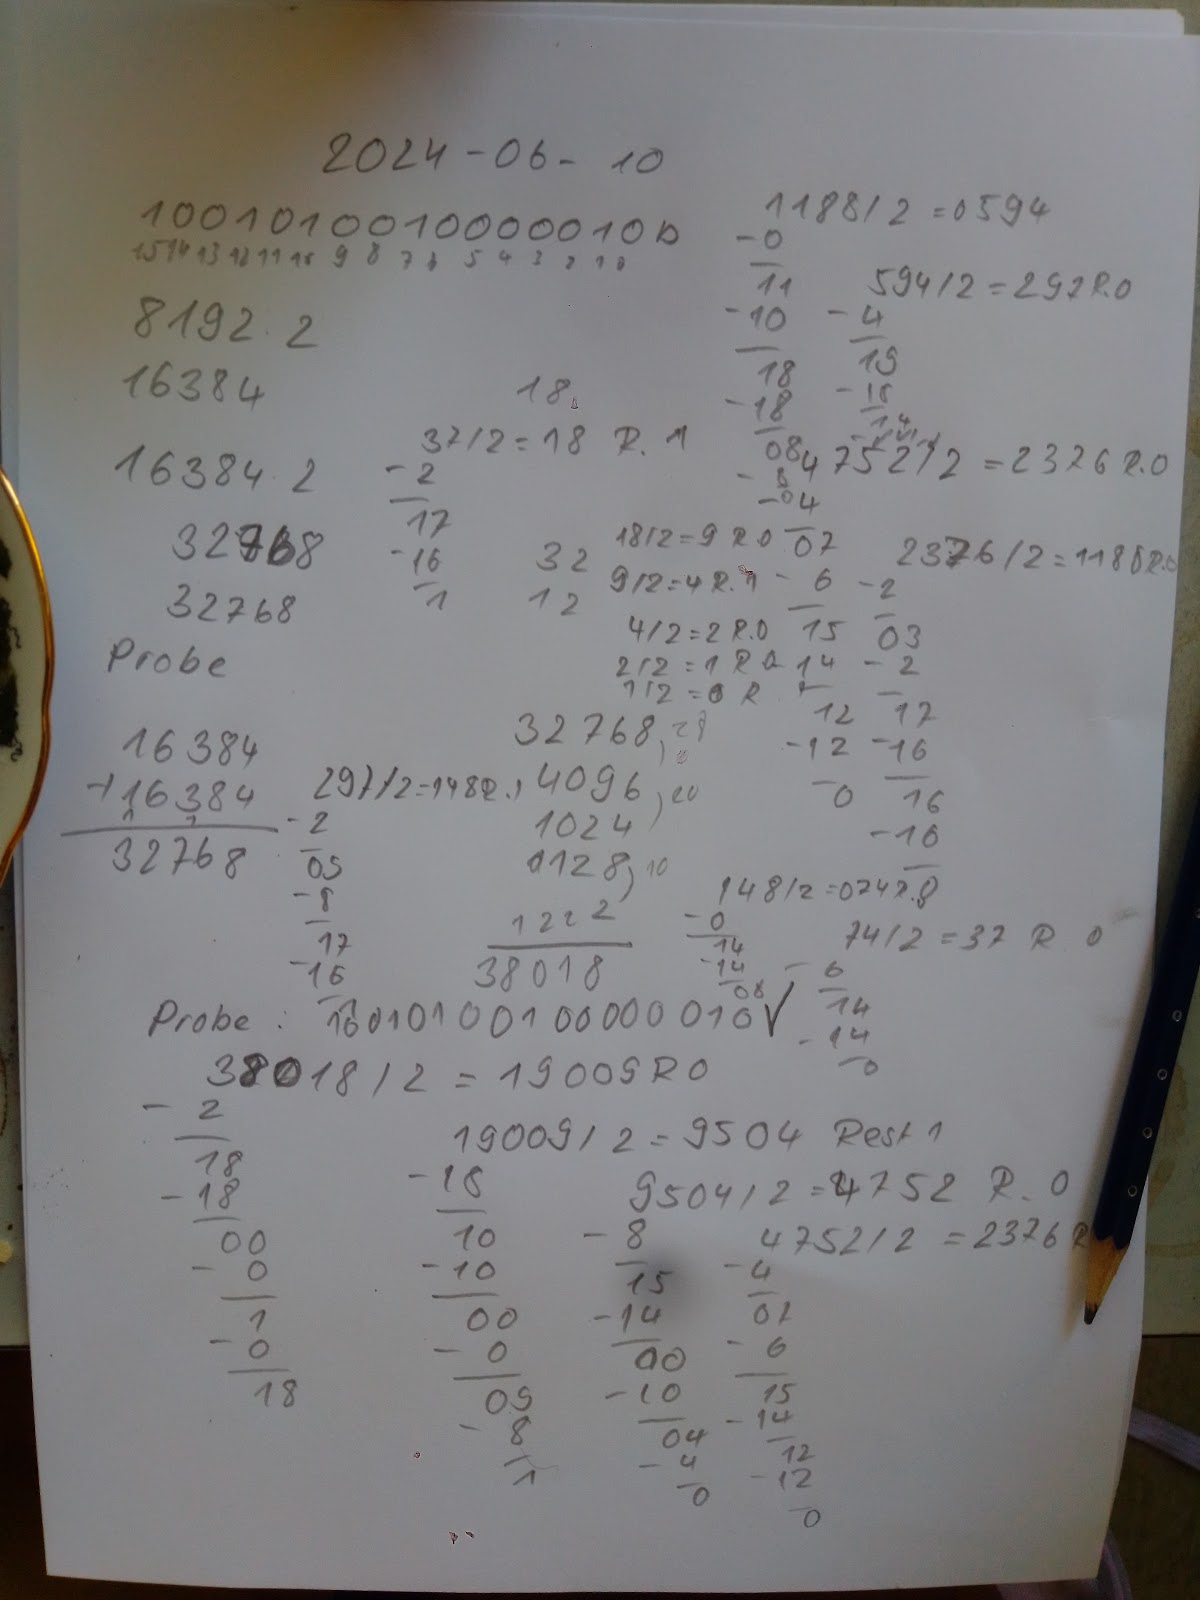 2024-06-10
1001010010000010b
15 14 13 12 11 10 9 8 7 6 5 4 3 2 1 0
8192 · 2
16384
16384 · 2
32768
32768
Probe
16384
+16384
1 1
32768
18
37/2=18 R. 1
-2
17
-16
1
32
12
1188/2=0594
-0
11
-10
18
-18
08
-8
594/2=297R.0
-4
19
-18
14
4752/2=2376 R.0
-04
07
-6
15
14
12
-12
0
2376/2=1188R.0
-2
03
-2
17
-16
16
-16
18/2=9 R0
9/2=4R.1
4/2=2R.0
2/2=1R0
1/2=0R
32768
4096, 20
1024
128, 10
1222
38018
297/2=148R.1
-2
09
-8
17
-16
1
148/2=074R.0
-0
14
-14
08
74/2=37 R 0
-6
14
-14
0
Probe: 1001010010000010 ✓
38018/2=19009R0
-2
18
-18
00
-0
1
-0
18
19009/2=9504 Rest 1
-18
10
-10
00
-0
09
-8
1
9504/2=4752 R. 0
-8
15
-14
00
-10
04
-4
0
4752/2=2376 R
-4
07
-6
15
-14
12
-12
0